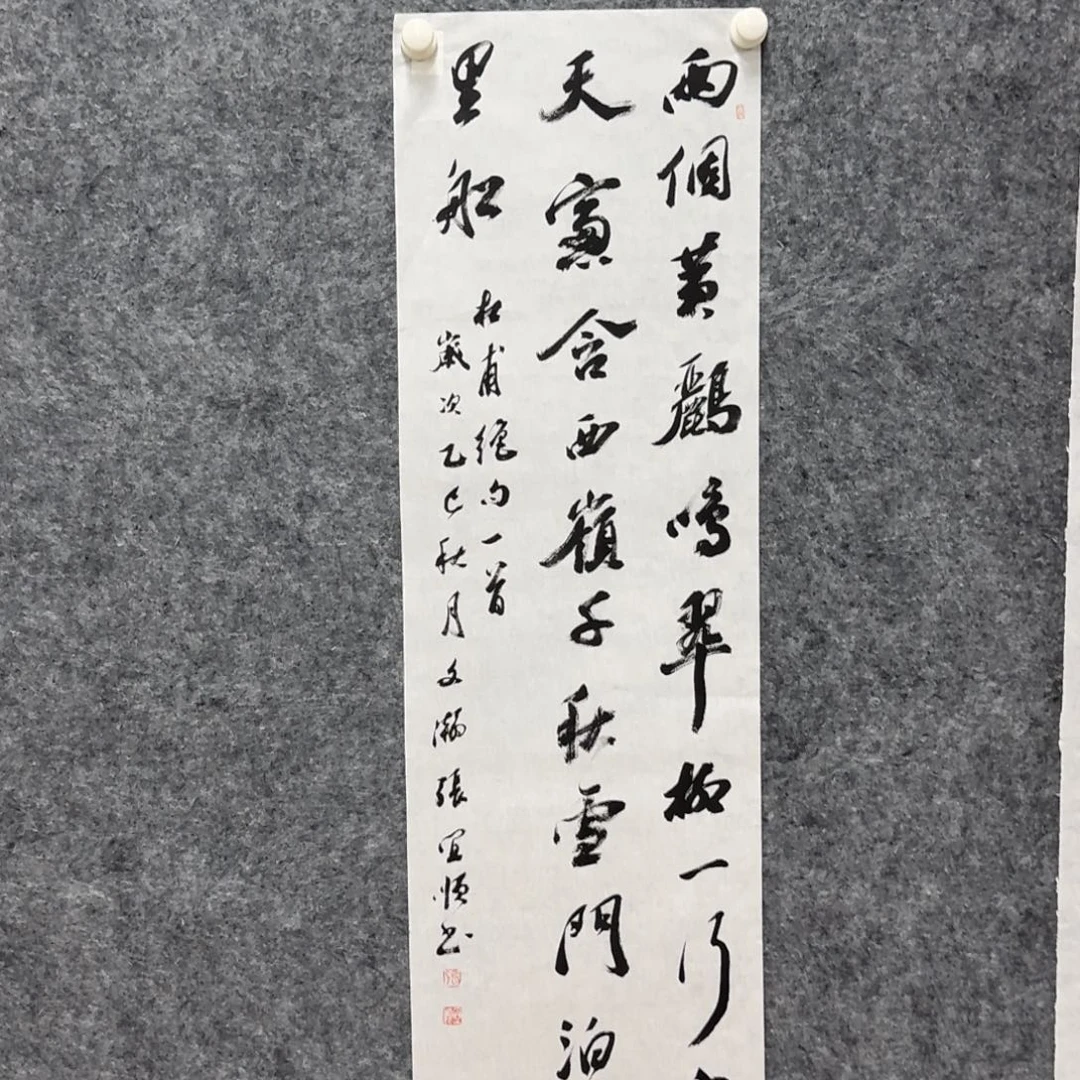 兩個黃鸝鳴翠柳一行
天窻含西嶺千秋雪門泊
里船
杜甫絕句一首
歲次乙巳秋月文瀚張宜順书